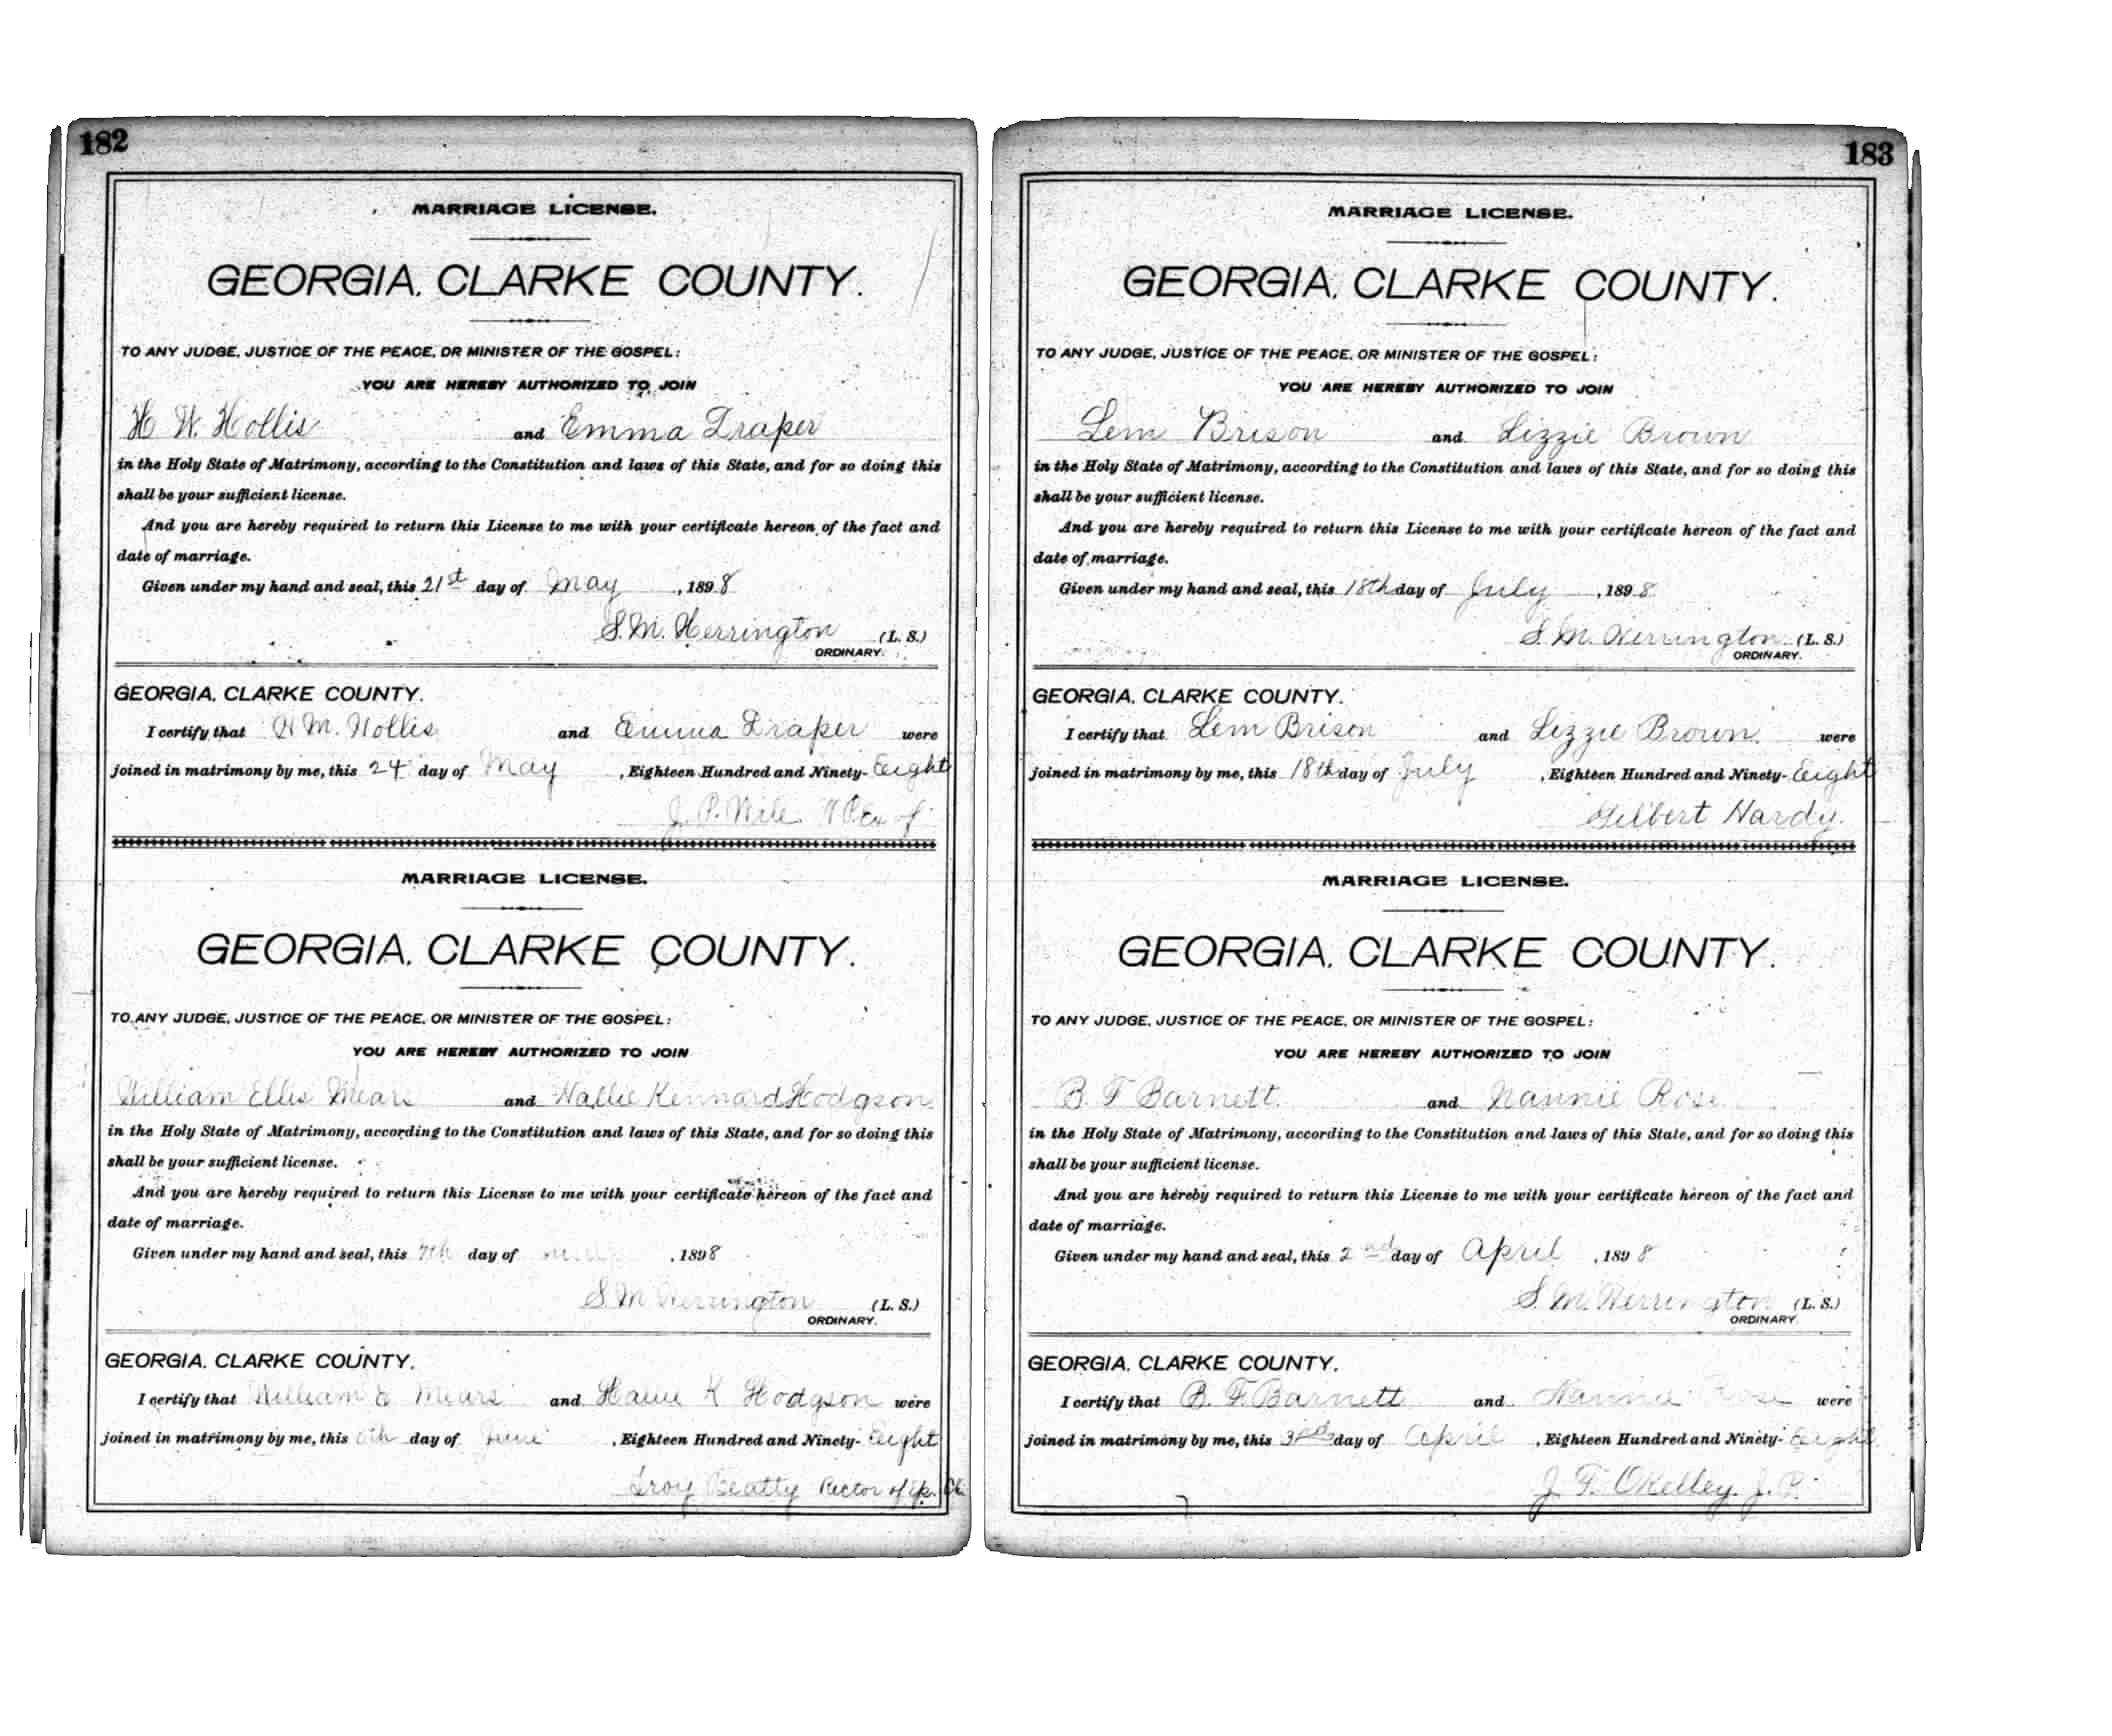 182
MARRIAGE LICENSE.
GEORGIA, CLARKE COUNTY.
TO ANY JUDGE, JUSTICE OF THE PEACE, OR MINISTER OF THE GOSPEL:
YOU ARE HEREBY AUTHORIZED TO JOIN
H W. Hollis and Emma Draper
in the Holy State of Matrimony, according to the Constitution and laws of this State, and for so doing this
shall be your sufficient license.
And you are hereby required to return this License to me with your certificate hereon of the fact and
date of marriage.
Given under my hand and seal, this 21st day of May , 1898
S. M. Herrington (L. S.)
ORDINARY.
GEORGIA, CLARKE COUNTY.
I certify that H M. Hollis and Emma Draper were
joined in matrimony by me, this 24 day of May , Eighteen Hundred and Ninety-Eight
J. P.
MARRIAGE LICENSE.
GEORGIA, CLARKE COUNTY.
TO ANY JUDGE, JUSTICE OF THE PEACE, OR MINISTER OF THE GOSPEL:
YOU ARE HEREBY AUTHORIZED TO JOIN
William Ellis Mears and Hallie Kennard Hodgson
in the Holy State of Matrimony, according to the Constitution and laws of this State, and for so doing this
shall be your sufficient license.
And you are hereby required to return this License to me with your certificate hereon of the fact and
date of marriage.
Given under my hand and seal, this 7th day of , 1898
S M Herrington (L. S.)
ORDINARY.
GEORGIA, CLARKE COUNTY.
I certify that William E Mears and K Hodgson were
joined in matrimony by me, this day of June , Eighteen Hundred and Ninety-Eight
Troy Beatty Rector of
183
MARRIAGE LICENSE.
GEORGIA, CLARKE COUNTY.
TO ANY JUDGE, JUSTICE OF THE PEACE, OR MINISTER OF THE GOSPEL:
YOU ARE HEREBY AUTHORIZED TO JOIN
Lem Brison and Lizzie Brown
in the Holy State of Matrimony, according to the Constitution and laws of this State, and for so doing this
shall be your sufficient license.
And you are hereby required to return this License to me with your certificate hereon of the fact and
date of marriage.
Given under my hand and seal, this 18th day of July , 1898
S. M. Herrington (L. S.)
ORDINARY.
GEORGIA, CLARKE COUNTY.
I certify that Lem Brison and Lizzie Brown were
joined in matrimony by me, this 18th day of July , Eighteen Hundred and Ninety-Eight
Gilbert Hardy.
MARRIAGE LICENSE.
GEORGIA, CLARKE COUNTY.
TO ANY JUDGE, JUSTICE OF THE PEACE, OR MINISTER OF THE GOSPEL:
YOU ARE HEREBY AUTHORIZED TO JOIN
B. F Barnett and Nannie Rose
in the Holy State of Matrimony, according to the Constitution and laws of this State, and for so doing this
shall be your sufficient license.
And you are hereby required to return this License to me with your certificate hereon of the fact and
date of marriage.
Given under my hand and seal, this 2nd day of April , 1898
S. M. Herrington (L. S.)
ORDINARY.
GEORGIA, CLARKE COUNTY.
I certify that B. F. Barnett and Nannie Rose were
joined in matrimony by me, this 3rd day of April , Eighteen Hundred and Ninety-Eight
J. F. OKelley. J. P.